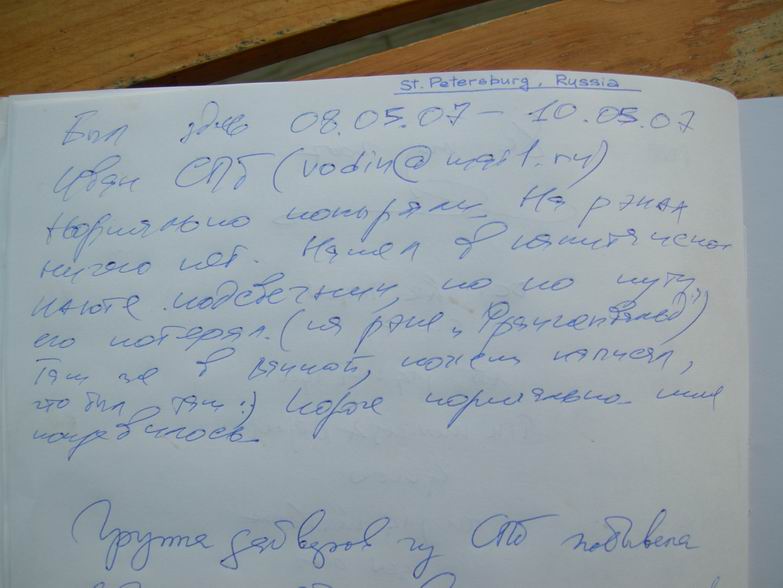 St. Petersburg, Russia
Был здесь 08.05.07 – 10.05.07
Иван СПб (vodin@mail.ru)
Нормально поныряли. На рэках
ничего нет. Нашел в капитанской
каюте подсвечник, но по пути
его потерял. (на рэке "
Там же в ванной, ножем написал,
что был там :) Короче нормально. мне
понравилось.
Группа дайверов из СПб побывала